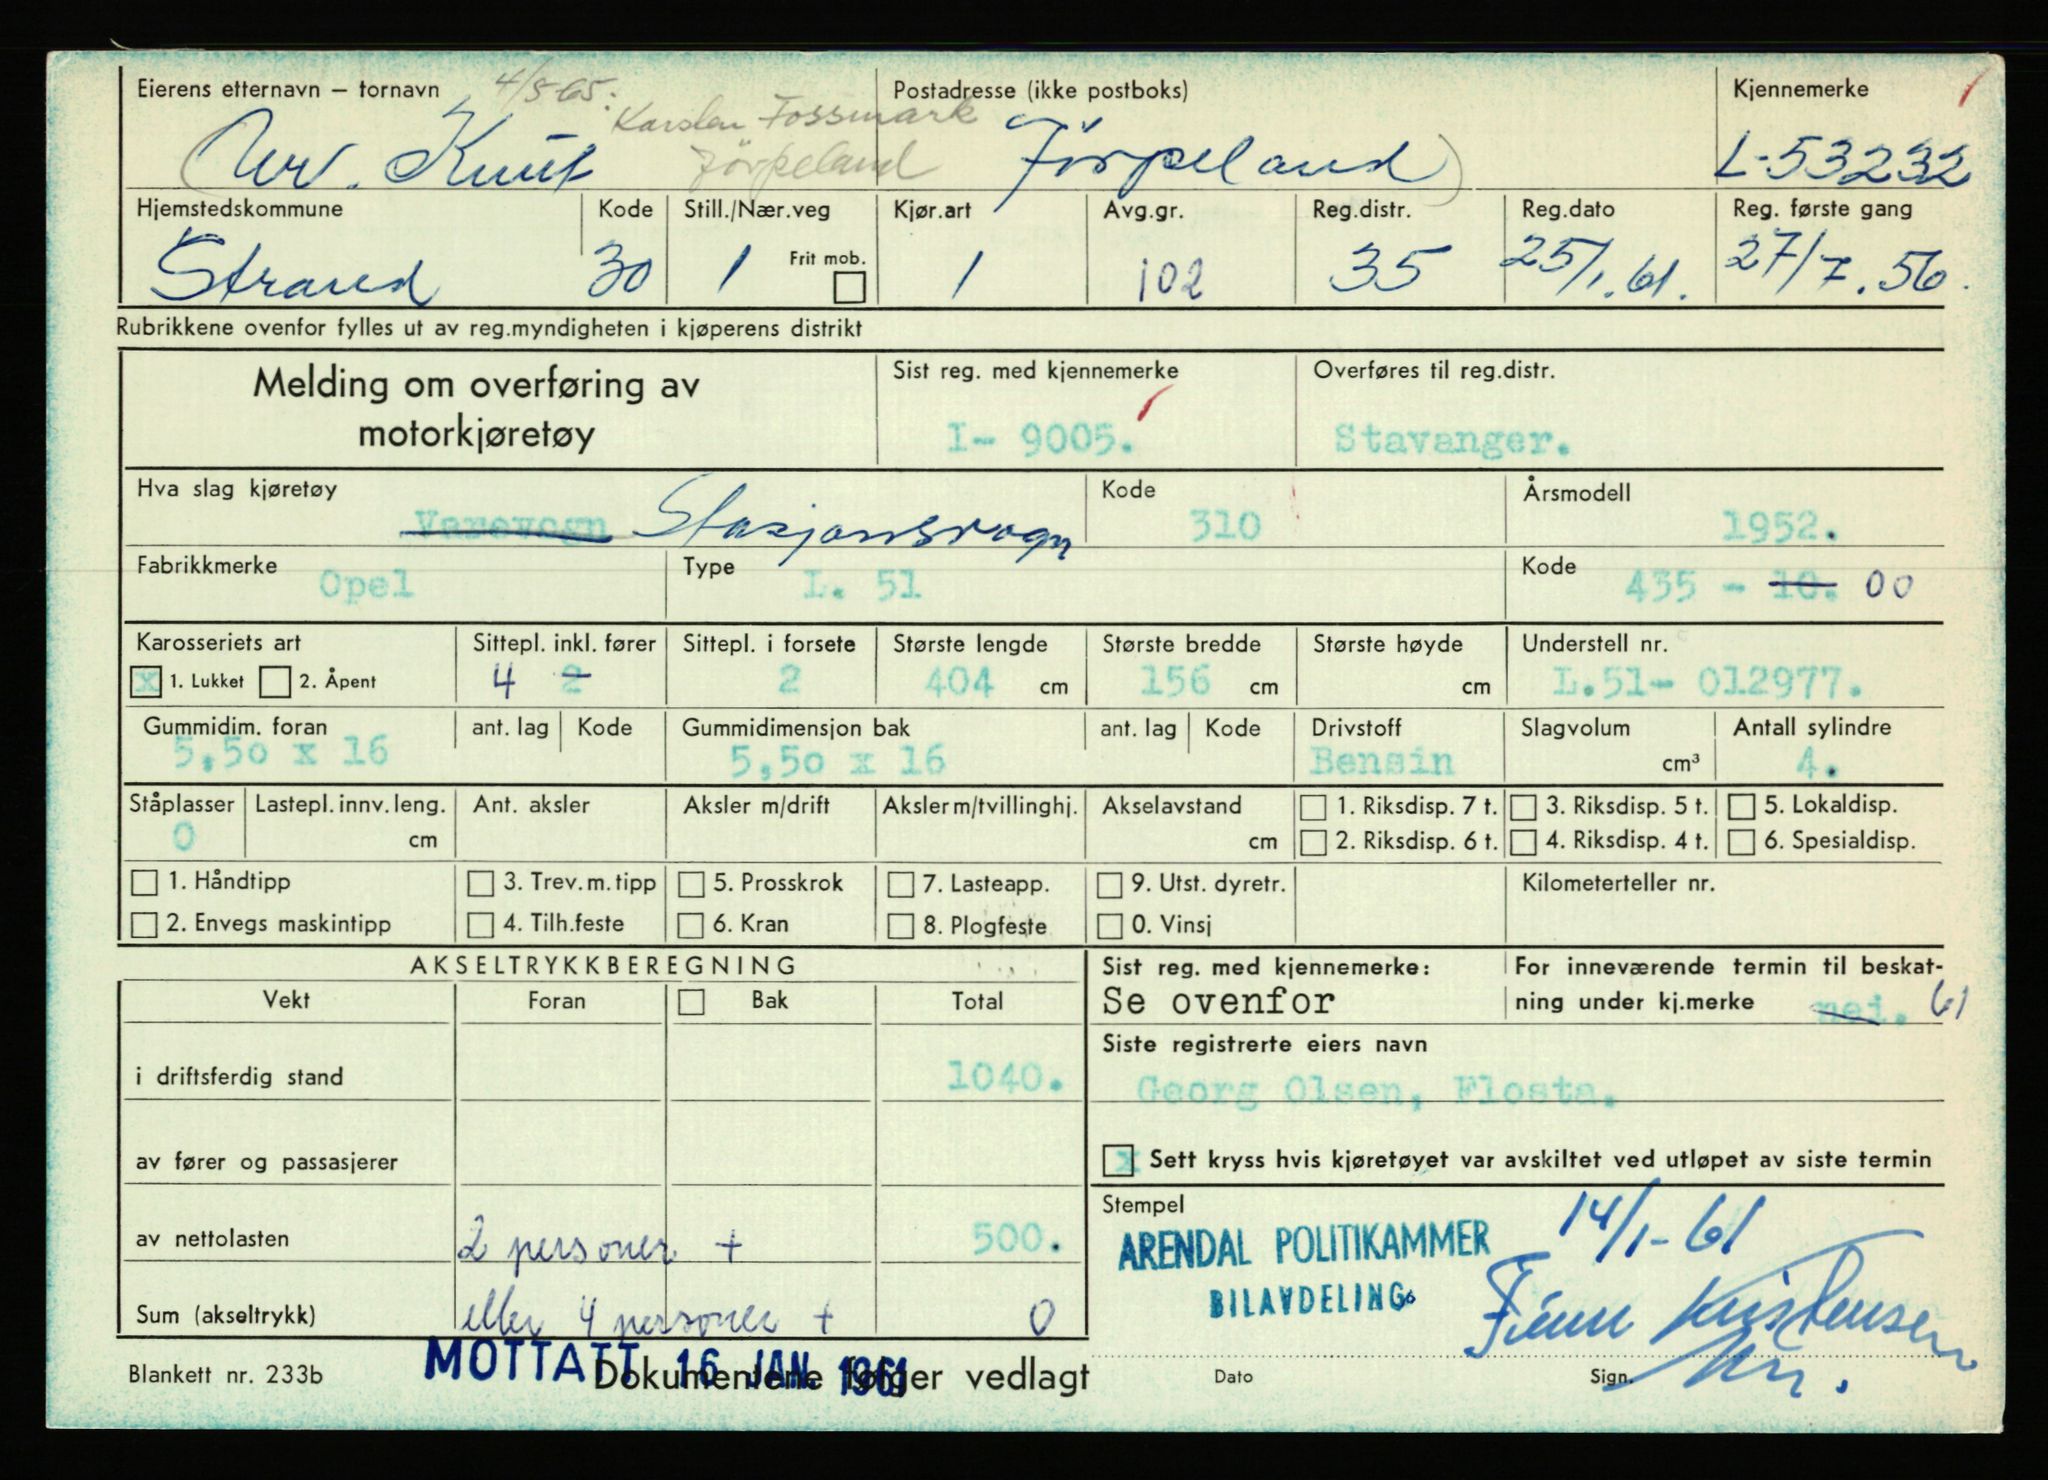 Eierens etternavn – fornavn 4/5-65. Postadresse (ikke postboks) Kjennemerke
Karsten Fossmark
(Urv. Knut Jörpeland Jörpeland) L-53232
Hjemstedskommune Kode Still./Nær.veg Kjør.art Avg.gr. Reg.distr. Reg.dato Reg. første gang
Strand 30 1 Frit mob. 1 102 35 25/1.61. 27/7.56.
Rubrikkene ovenfor fylles ut av reg.myndigheten i kjøperens distrikt
Melding om overføring av motorkjøretøy
Sist reg. med kjennemerke Overføres til reg.distr.
I- 9005. Stavanger.
Hva slag kjøretøy Kode Årsmodell
Varevogn Stasjonsvogn 310 1952.
Fabrikkmerke Type Kode
Opel L. 51 435 - 10. 00
Karosseriets art Sittepl. inkl. fører Sittepl. i forsete Største lengde Største bredde Største høyde Understell nr.
x 1. Lukket 2. Åpent 4 2 2 404 cm 156 cm cm L.51- 012977.
Gummidim. foran ant. lag Kode Gummidimensjon bak ant. lag Kode Drivstoff Slagvolum Antall sylindre
5,50 x 16 5,50 x 16 Bensin cm³ 4.
Ståplasser Lastepl. innv. leng. Ant. aksler Aksler m/drift Aksler m/tvillinghj. Akselavstand 1. Riksdisp. 7 t. 3. Riksdisp. 5 t. 5. Lokaldisp.
0 cm cm 2. Riksdisp. 6 t. 4. Riksdisp. 4 t. 6. Spesialdisp.
1. Håndtipp 3. Trev. m. tipp 5. Prosskrok 7. Lasteapp. 9. Utst. dyretr. Kilometerteller nr.
2. Envegs maskintipp 4. Tilh.feste 6. Kran 8. Plogfeste 0. Vinsj
AKSELTRYKKBEREGNING
Vekt Foran Bak Total
i driftsferdig stand 1040.
av fører og passasjerer
av nettolasten 2 personer + 500.
Sum (akseltrykk) eller 4 personer + 0
Sist reg. med kjennemerke: For inneværende termin til beskat-
Se ovenfor ning under kj.merke nei. 61
Siste registrerte eiers navn
Georg Olsen, Flosta.
x Sett kryss hvis kjøretøyet var avskiltet ved utløpet av siste termin
Stempel 14/1-61
ARENDAL POLITIKAMMER
BILAVDELING
Finn Kristensen
Blankett nr. 233b MOTTATT 16 JAN. 1961 Dokumentene følger vedlagt Dato Sign.